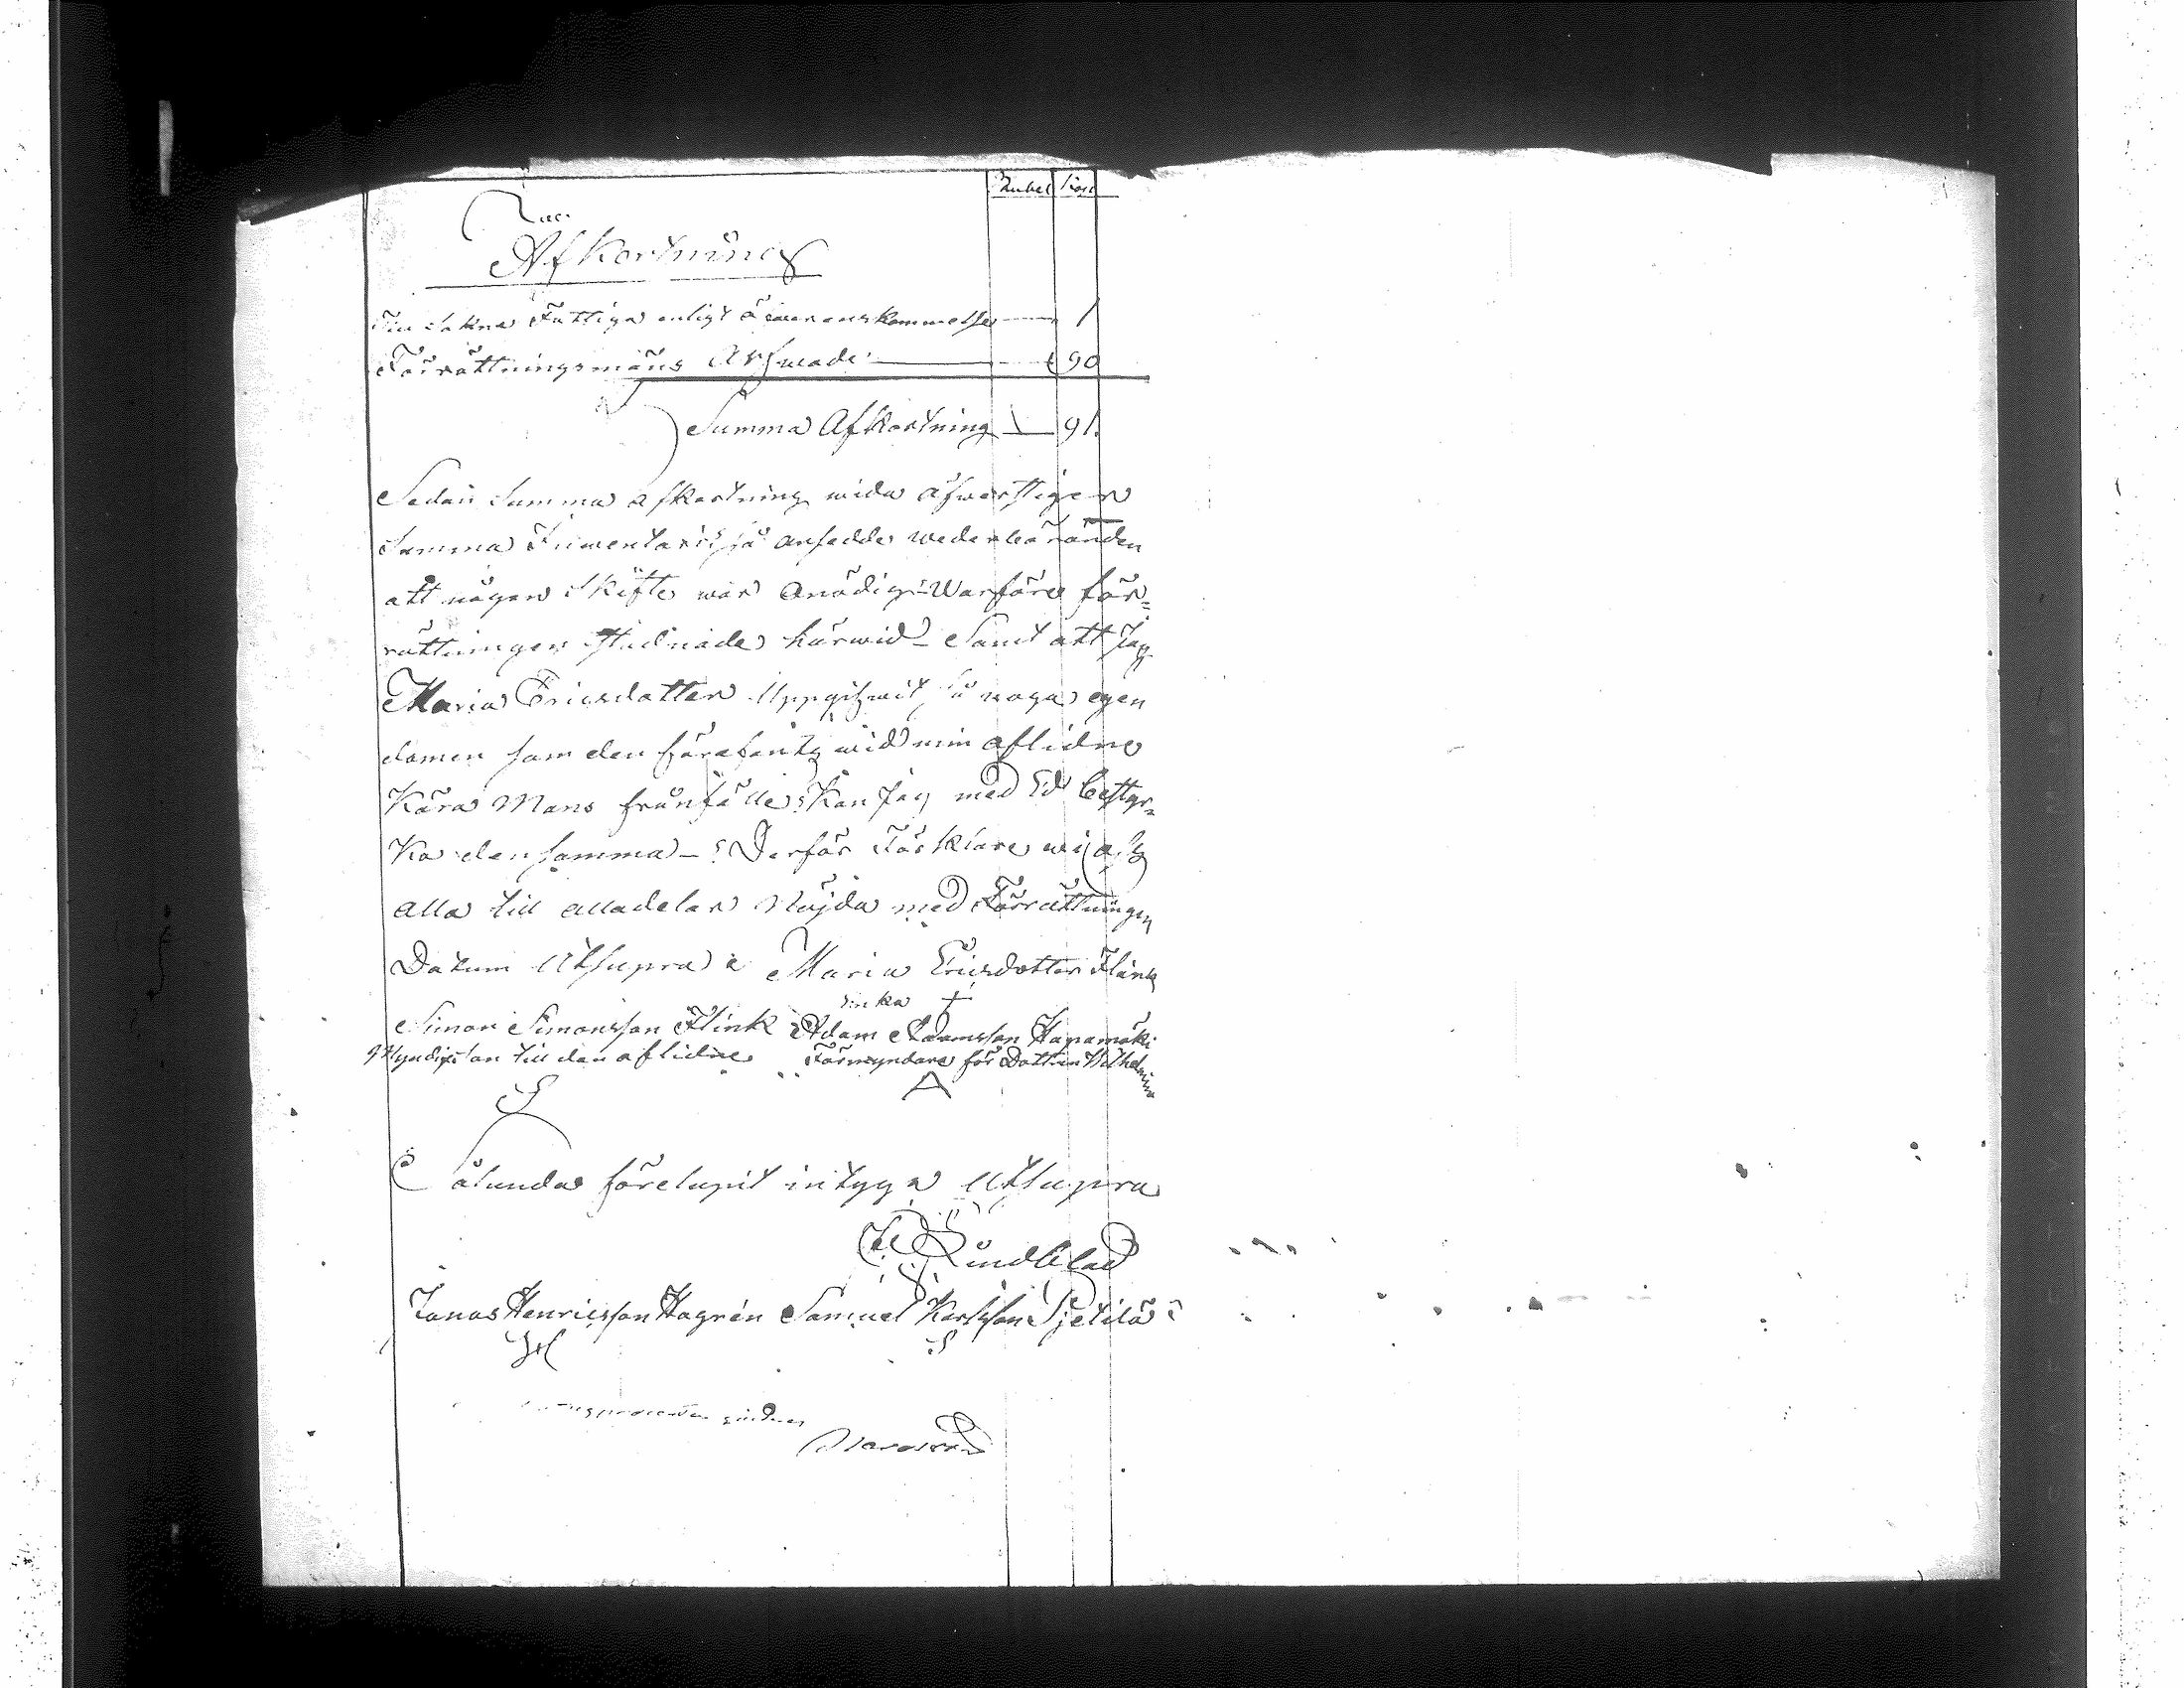 Rubel Kop
Afkortning
Till Sokne Fattiga enligt Öwerenskommelse 1
Förrättningsmäns Arfwode 90
Summa Afkortning 91
Sedan Summa afkortning wida öfwerstiger
Summa Inwentarii så ansedde wederbörande
att någon Skifte war Onödig Warföre för=
rättningen stadnade härwid Samt att Jag
Maria Ericsdotter Uppgifwit så noga egen
domen som den förefants wid min aflidne
Kära Mans frånfälle Kan Jag med Ed bestyr=
ka den samma Derför Förklare wi oss
alla till alladelar Nöjda med Förrättningen
Datum Utsupra Maria Ericsdotter Flink
Enka +
Simon Simonsson Flink Adam Adamsson Hapamäki
Myndig son till den aflidne Förmyndare för Dottren Wilhelmina
Sålunda förelupit intyga Utsupra
Lindblad
Jonas Henricsson Hagrén Samuel Karlsson Sjetilä